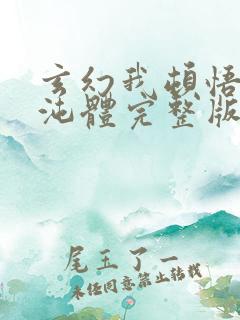 玄幻我頓悟
沌體完整版
尾五了一
未经同意禁止转载